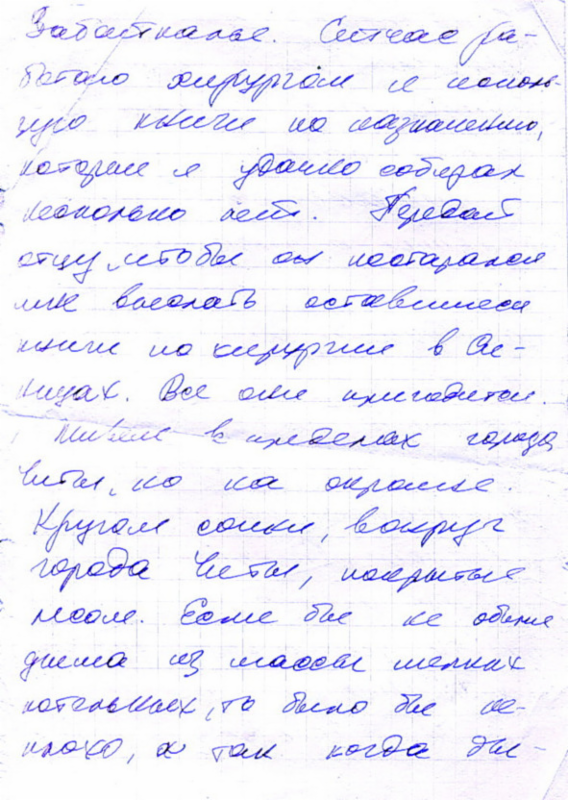 Забайкалье. Сейчас ра-
ботаю хирургом и исполь-
зую книги по назначению,
которые я удачно собирал
несколько лет. Передай
отцу, чтобы он постарался
мне выслать оставшиеся
книги по хирургии в Си-
ницах. Все они пригодятся.
Живём в пределах города
Читы, но на окраине.
Кругом сопки, вокруг
города Читы, покрытые
лесом. Если бы не обилие
дыма из массы мелких
котельных, то было бы не-
плохо, а так когда ды-